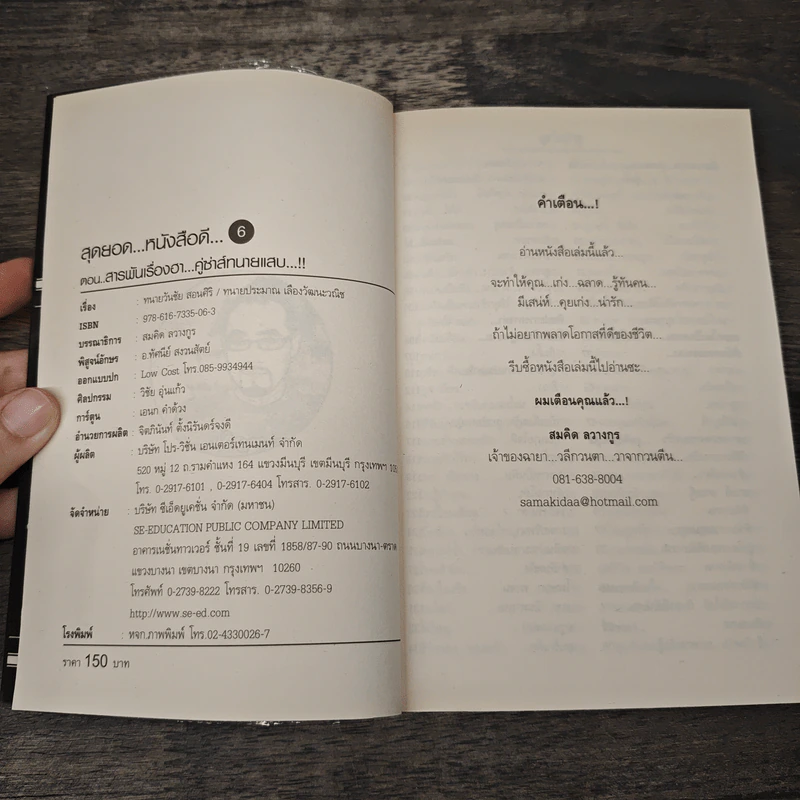 สุดยอด...หนังสือดี... 6
ตอน..สารพันเรื่องฮา...คู่ซ่าส์ทนายแสบ...!!
เรื่อง : ทนายวันชัย สอนศิริ / ทนายประมาณ เลืองวัฒนะวณิช
ISBN : 978-616-7335-06-3
บรรณาธิการ : สมคิด ลวางกูร
พิสูจน์อักษร : อ.ทัศนีย์ สงวนสัตย์
ออกแบบปก : Low Cost โทร.085-9934944
ศิลปกรรม : วิชัย อุ่นแก้ว
การ์ตูน : เอนก คำด้วง
อำนวยการผลิต : จิตภินันท์ ตั้งนิรันดร์จงดี
ผู้ผลิต : บริษัท โปร-วิชั่น เอนเตอร์เทนเมนท์ จำกัด
520 หมู่ 12 ถ.รามคำแหง 164 แขวงมีนบุรี เขตมีนบุรี กรุงเทพฯ
โทร. 0-2917-6101 , 0-2917-6404 โทรสาร. 0-2917-6102
จัดจำหน่าย : บริษัท ซีเอ็ดยูเคชั่น จำกัด (มหาชน)
SE-EDUCATION PUBLIC COMPANY LIMITED
อาคารเนชั่นทาวเวอร์ ชั้นที่ 19 เลขที่ 1858/87-90 ถนนบางนา-ตราด
แขวงบางนา เขตบางนา กรุงเทพฯ 10260
โทรศัพท์ 0-2739-8222 โทรสาร. 0-2739-8356-9
http://www.se-ed.com
โรงพิมพ์ : หจก.ภาพพิมพ์ โทร.02-4330026-7
ราคา 150 บาท
คำเตือน...!
อ่านหนังสือเล่มนี้แล้ว...
จะทำให้คุณ...เก่ง...ฉลาด...รู้ทันคน...
มีเสน่ห์...คุยเก่ง...น่ารัก...
ถ้าไม่อยากพลาดโอกาสที่ดีของชีวิต...
รีบซื้อหนังสือเล่มนี้ไปอ่านซะ...
ผมเตือนคุณแล้ว...!
สมคิด ลวางกูร
เจ้าของฉายา...วลีกวนตา...วาจากวนตีน...
081-638-8004
samakidaa@hotmail.com